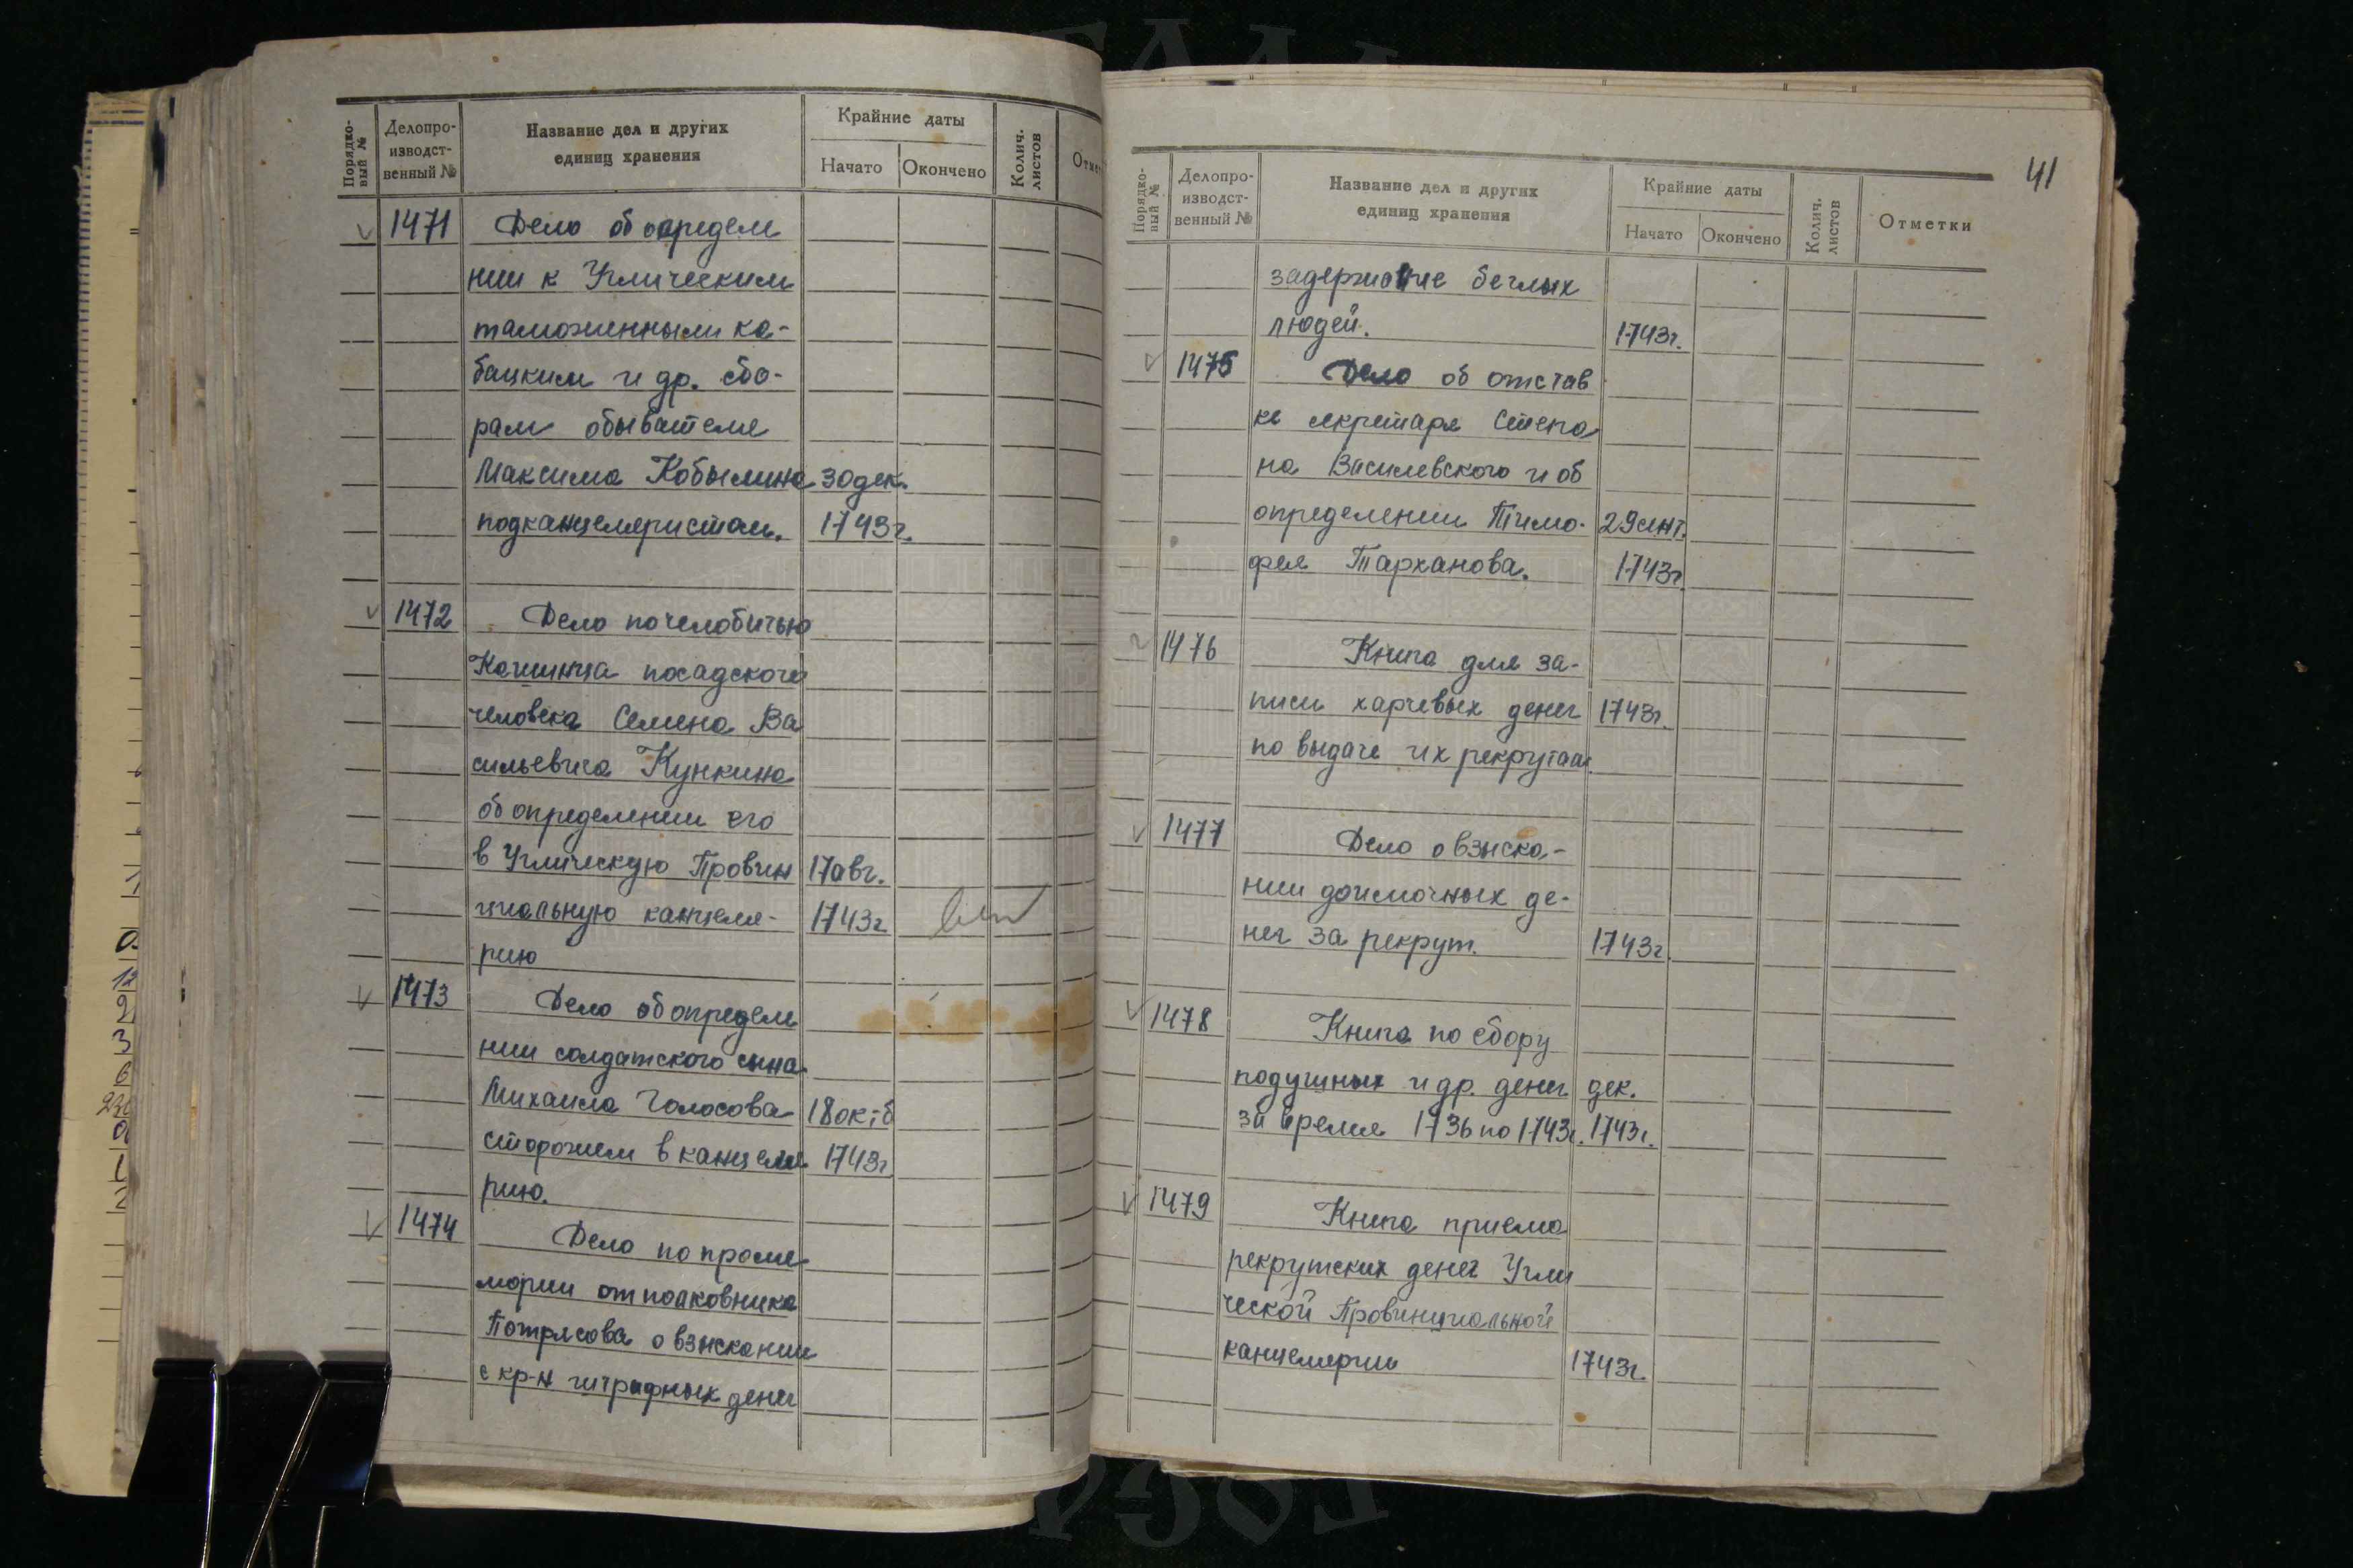 Порядко-
вый №
Делопро-
изводст-
венный №
Название дел и других
единиц хранения
Крайние даты
Начато
Окончено
Колич.
листов
Отмет
1471 Дело об определе
нии к Угличским
таможенным ка-
бацким и др. сбо-
рам обывателя
Максима Кобылина 30 дек.
подканцеляристом. 1743г.
1472 Дело по челобитью
Кашинца посадского
человека Семена Ва
сильевича Кункина
об определении его
в Угличскую Провин 17 авг.
циальную канцеля- 1743г
рию
1473 Дело об определе
нии солдатского сына
Михаила Голосова 18 октб
сторожем в канцеля 1743г.
рию.
1474 Дело по проме
мории от полковника
Потрясова о взыскании
с кр-н штрафных денег
41
Порядко-
вый №
Делопро-
изводст-
венный №
Название дел и других
единиц хранения
Крайние даты
Начато
Окончено
Колич.
листов
Отметки
задержание беглых
людей. 1743г.
1475 Дело об отстав
ке секретаря Степа
на Василевского и об
определении Тимо- 29 сент.
фея Тарханова. 1743г
1476 Книга для за-
писи харчевых денег 1743г.
по выдаче их рекрутам
1477 Дело о взыска-
нии доимочных де-
нег за рекрут. 1743г.
1478 Книга по сбору
подушных и др. денег дек.
за время 1736 по 1743г. 1743г.
1479 Книга приема
рекрутских денег Угли
ческой Провинциальной
канцелярии 1743г.